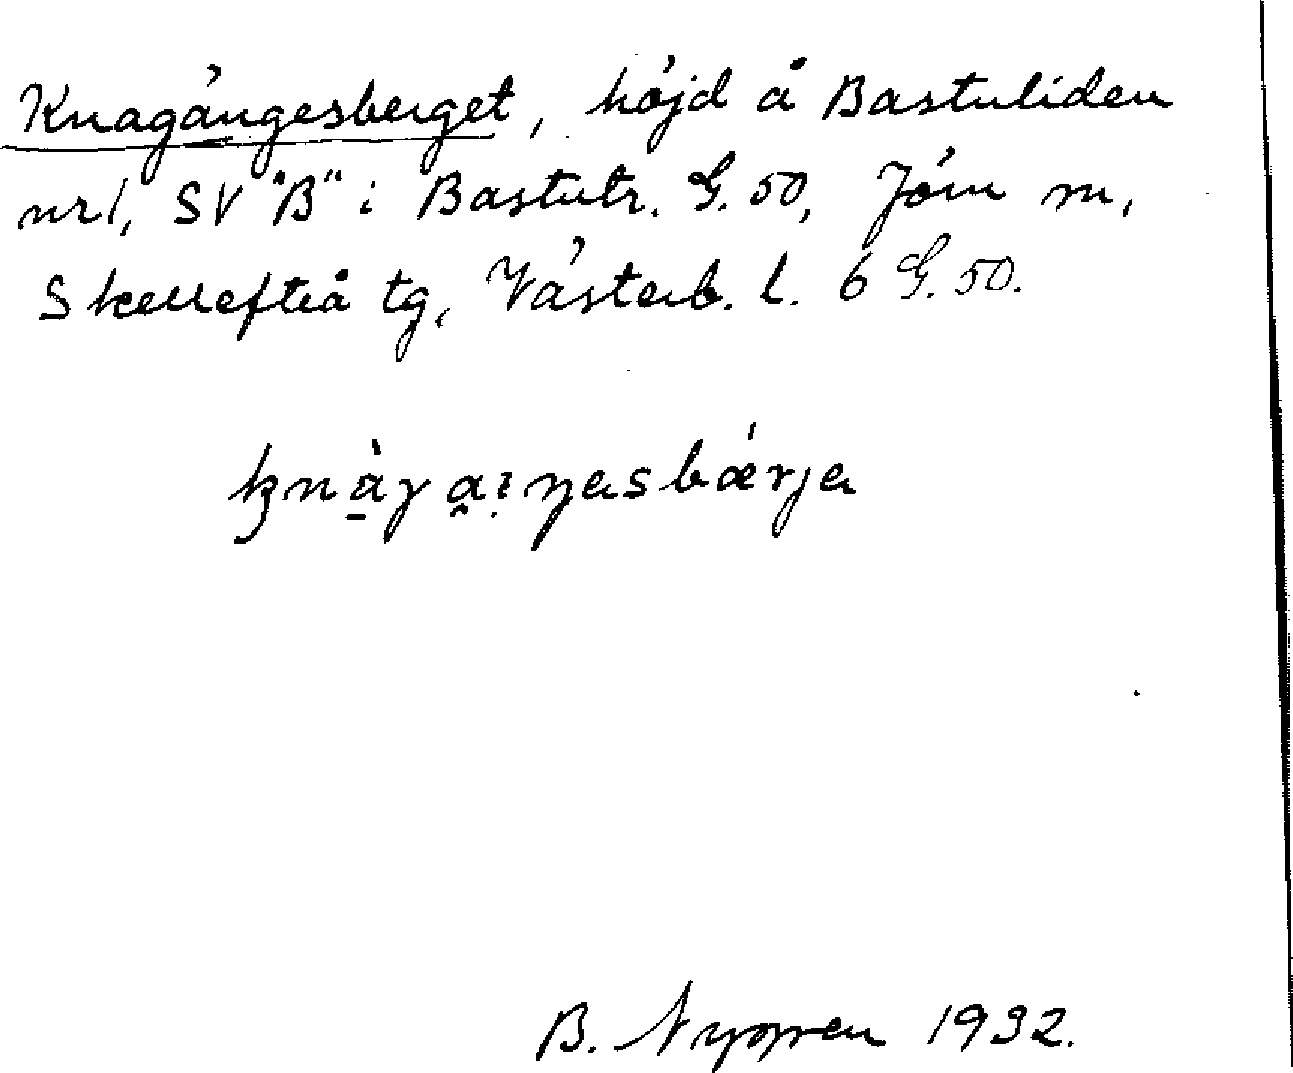 Knagängesberget, höjd å Bastuliden
nr1, SV "B" i Bastutr. G. 50, Jörn m,
Skellefteå tg, Västerb. l. 6 G. 50.
B. Nygren 1932.